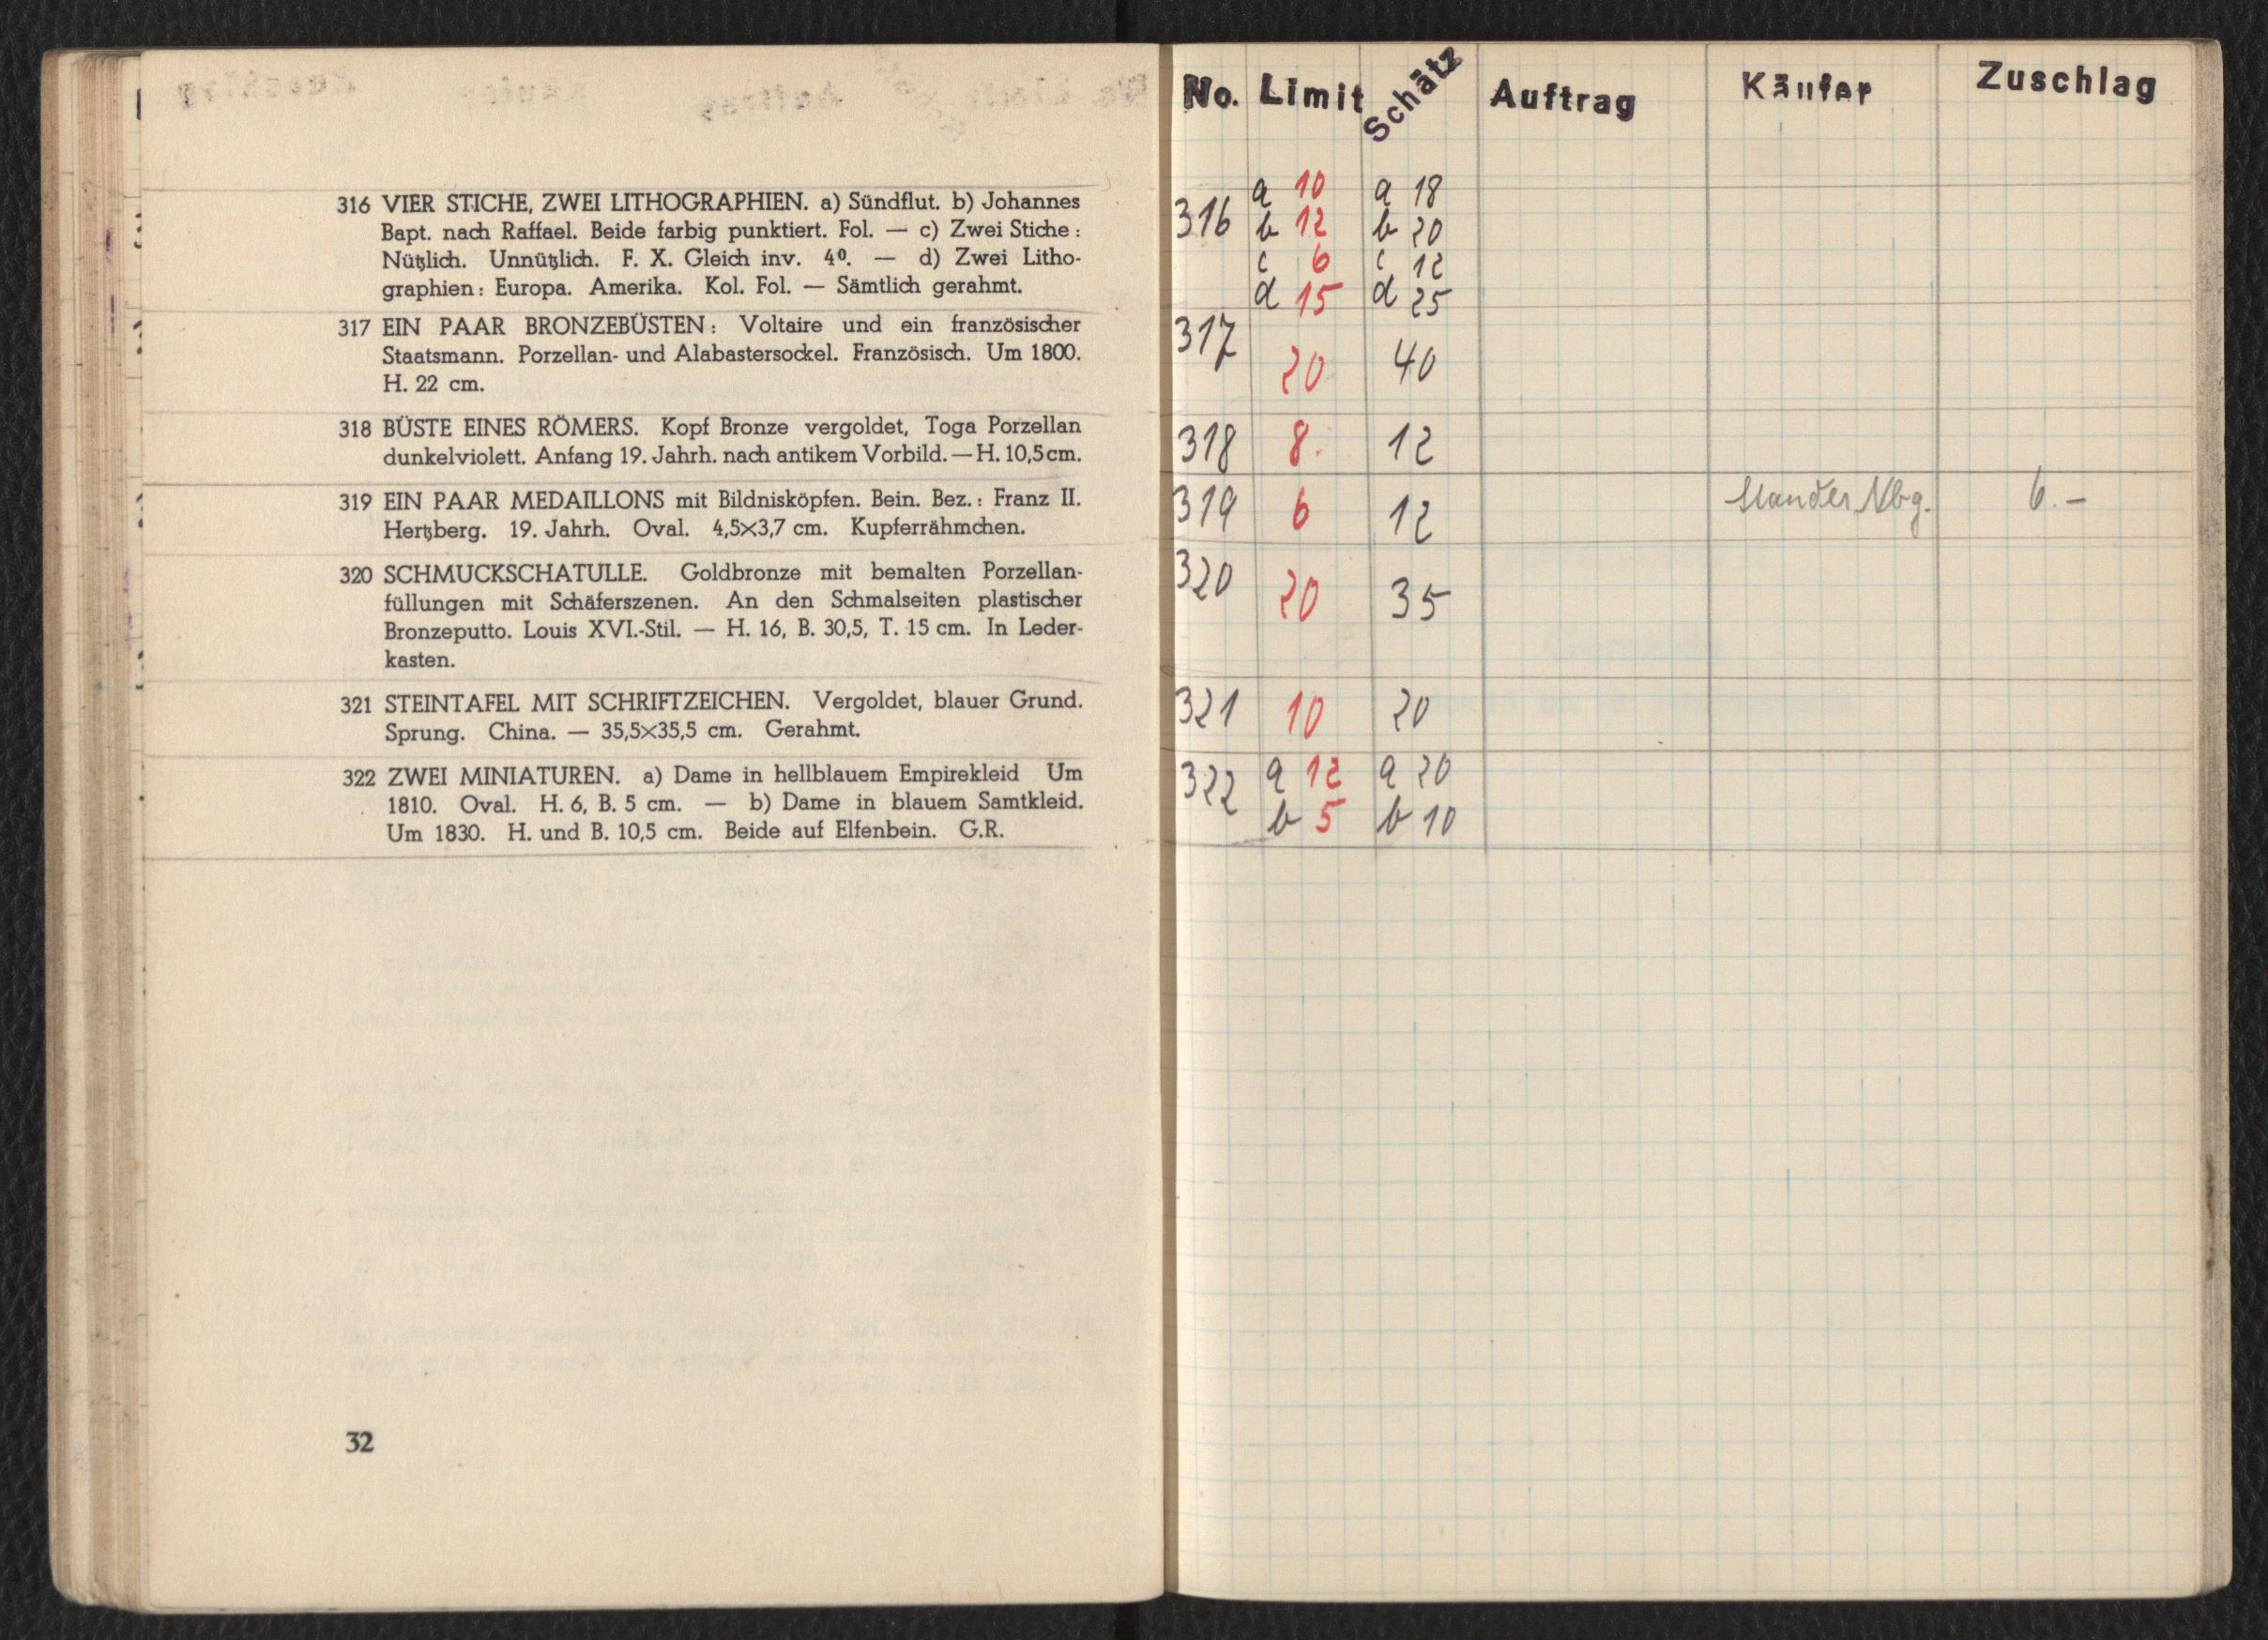 316 VIER STICHE, ZWEI LITHOGRAPHIEN. a) Sündflut. b) Johannes
Bapt. nach Raffael. Beide farbig punktiert. Fol. — c) Zwei Stiche:
Nützlich. Unnützlich. F. X. Gleich inv. 4⁰. — d) Zwei Litho-
graphien: Europa. Amerika. Kol. Fol. — Sämtlich gerahmt.
317 EIN PAAR BRONZEBÜSTEN: Voltaire und ein französischer
Staatsmann. Porzellan- und Alabastersockel. Französisch. Um 1800.
H. 22 cm.
318 BÜSTE EINES RÖMERS. Kopf Bronze vergoldet, Toga Porzellan
dunkelviolett. Anfang 19. Jahrh. nach antikem Vorbild. — H. 10,5 cm.
319 EIN PAAR MEDAILLONS mit Bildnisköpfen. Bein. Bez.: Franz II.
Hertzberg. 19. Jahrh. Oval. 4,5×3,7 cm. Kupferrähmchen.
320 SCHMUCKSCHATULLE. Goldbronze mit bemalten Porzellan-
füllungen mit Schäferszenen. An den Schmalseiten plastischer
Bronzeputto. Louis XVI.-Stil. — H. 16, B. 30,5, T. 15 cm. In Leder-
kasten.
321 STEINTAFEL MIT SCHRIFTZEICHEN. Vergoldet, blauer Grund.
Sprung. China. — 35,5×35,5 cm. Gerahmt.
322 ZWEI MINIATUREN. a) Dame in hellblauem Empirekleid Um
1810. Oval. H. 6, B. 5 cm. — b) Dame in blauem Samtkleid.
Um 1830. H. und B. 10,5 cm. Beide auf Elfenbein. G.R.
32
No. Limit Schätz Auftrag Käufer Zuschlag
316 a 10 a 18
b 12 b 20
c 6 c 12
d 15 d 25
317 20 40
318 8. 12
319 6 12 Nbg. 6.–
320 20 35
321 10 20
322 a 12 a 20
b 5 b 10